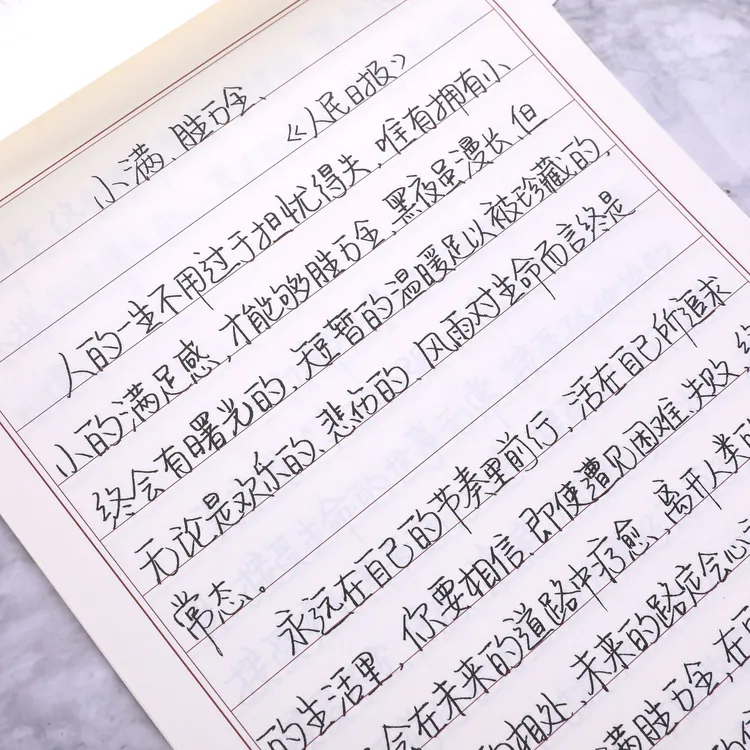 小满、胜万全、
《人民日报》
人的一生不用过于担忧得失、唯有拥有小、
小的满足感，才能够胜万全、黑夜虽漫长、但
终会有曙光的、短暂的温暖足以被珍藏的，
无论是欢乐的、悲伤的、风雨对生命而言终是
常态。
永远在自己的节奏里前行，活在自己所追求
的生活里，你要相信，即使遭见困难、失败、
会在未来的道路中疗愈，离开人类的
的相处，未来的路定会心
满胜万全，在